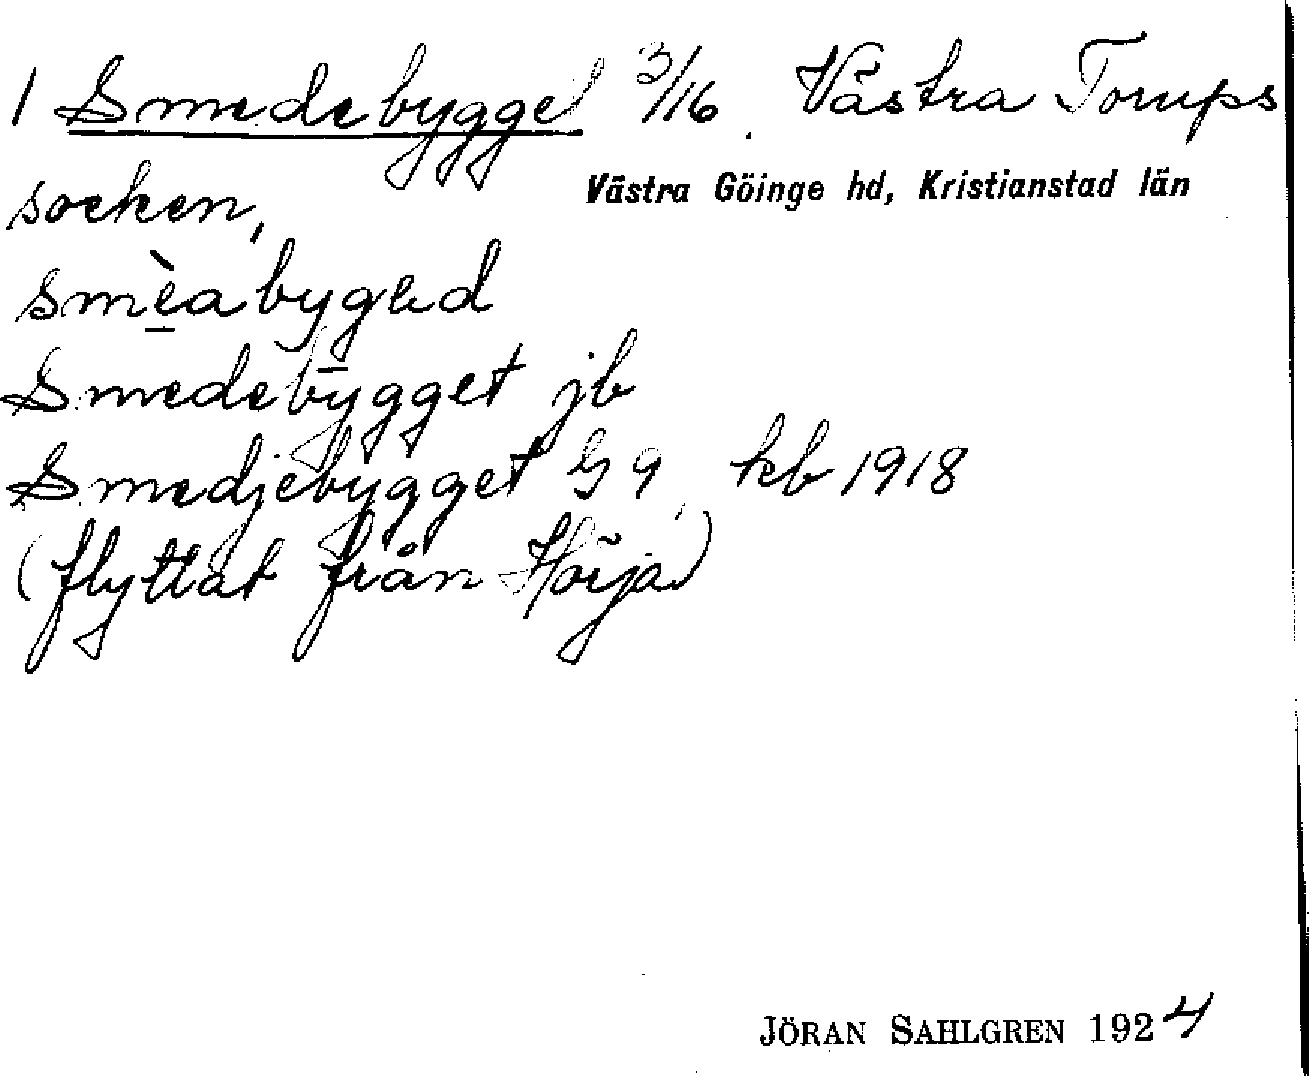 1 Smedebygget 3/16. Västra Torups
socken,
Västra Göinge hd, Kristianstad län
smèabygəd
Smedebygget jb
Smedjebygget G 9, kb 1918
(flyttat från Hörja)
JÖRAN SAHLGREN 1924